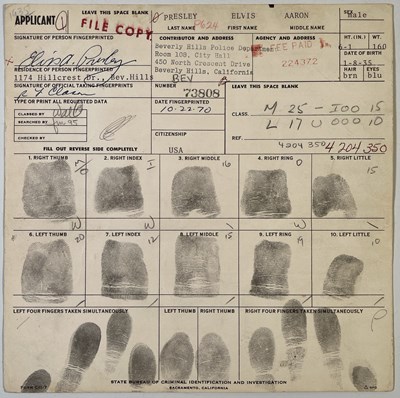 APPLICANT 1
LEAVE THIS SPACE BLANK
FILE COPY
PRESLEY ELVIS AARON
LAST NAME FIRST NAME MIDDLE NAME
SEX Male
SIGNATURE OF PERSON FINGERPRINTED
Elvis A. Presley
CONTRIBUTOR AND ADDRESS
AGENCY AND ADDRESS
HT. (IN.) WT.
160
Beverly Hills Police Department
Room 103, City Hall
450 North Crescent Drive
Beverly Hills, California
FEE PAID
224372
DATE OF BIRTH
1-8-35
RESIDENCE OF PERSON FINGERPRINTED
1174 Hillcrest Dr., Bev.Hills
HAIR EYES
brn blu
SIGNATURE OF OFFICIAL TAKING FINGERPRINTS
NUMBER
73808
LEAVE THIS SPACE BLANK
TYPE OR PRINT ALL REQUESTED DATA
DATE FINGERPRINTED
10-22-70
CLASS.
M 25 - IOO 15
L 17 U 000 10
CLASSED BY
SEARCHED BY
CITIZENSHIP
USA
REF.
4204 350
4 204 350
FILL OUT REVERSE SIDE COMPLETELY
1. RIGHT THUMB
2. RIGHT INDEX
3. RIGHT MIDDLE
4. RIGHT RING
5. RIGHT LITTLE
16
15
W
W
6. LEFT THUMB
7. LEFT INDEX
8. LEFT MIDDLE
9. LEFT RING
10. LEFT LITTLE
20
12
15
19
10
W
W
LEFT FOUR FINGERS TAKEN SIMULTANEOUSLY
LEFT THUMB
RIGHT THUMB
RIGHT FOUR FINGERS TAKEN SIMULTANEOUSLY
STATE BUREAU OF CRIMINAL IDENTIFICATION AND INVESTIGATION
SACRAMENTO, CALIFORNIA